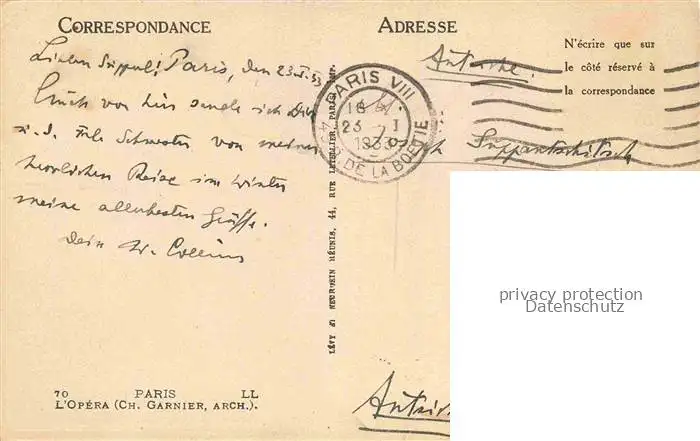 CORRESPONDANCE
Paris, den 23.I.33
Auch von hier sende ich Dir
u. d. Frl. Schwester von meiner
herrlichen Reise im Winter
meine allerbesten Grüsse.
Dein W. Collins
70 PARIS LL
L'OPÉRA (CH. GARNIER, ARCH.).
LÉVY & NEURDEIN RÉUNIS, 44, RUE LETELLIER, PARIS
ADRESSE
N'écrire que sur
le côté réservé à
la correspondance
PARIS VIII
18
23 - I
1933
R. DE LA BOETIE
Suppantschitsch
privacy protection
Datenschutz